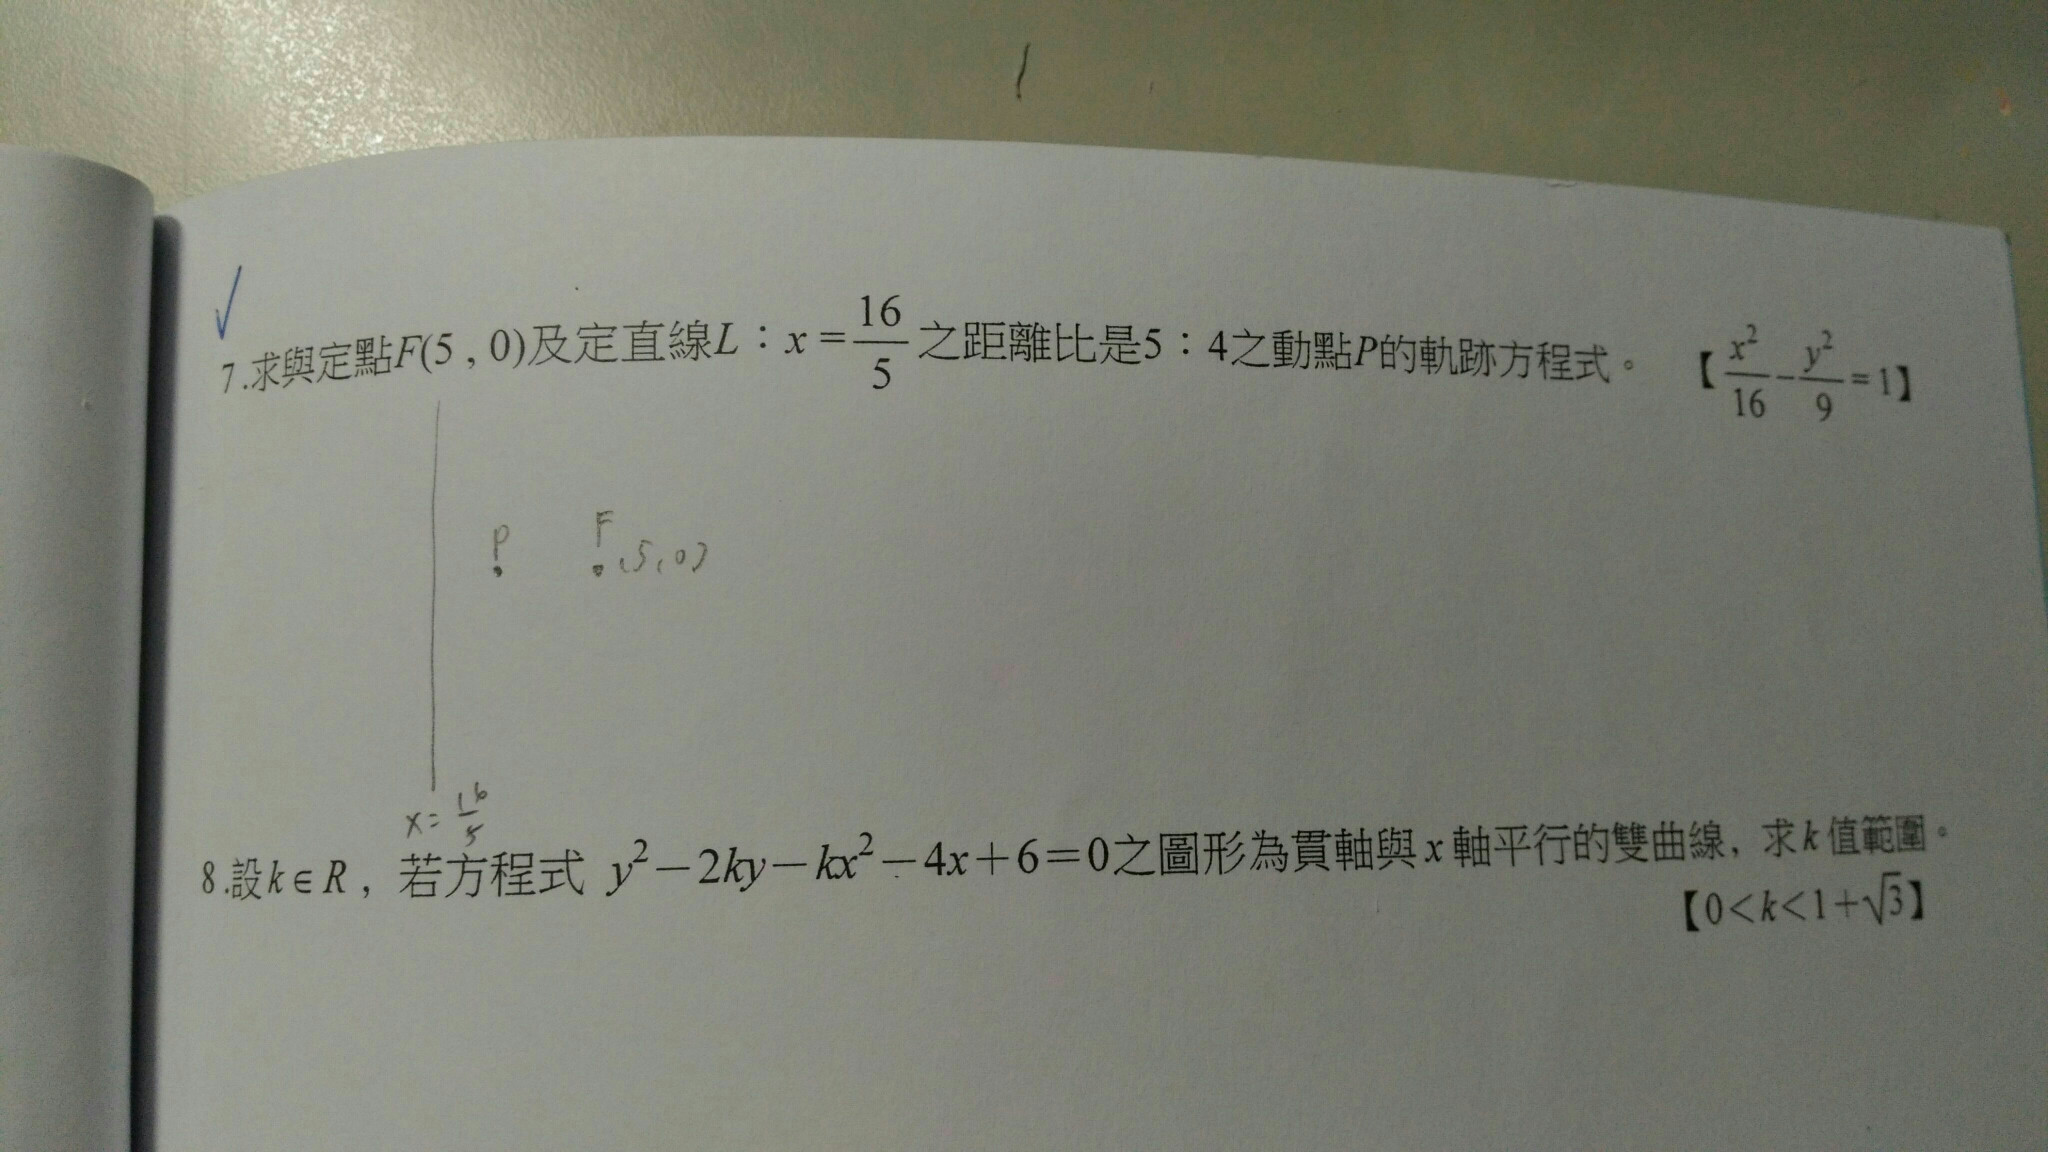 7.求與定點F(5 , 0)及定直線L：x = 16/5 之距離比是5：4之動點P的軌跡方程式。 【x²/16 − y²/9 = 1】
P F (5,0)
x = 16/5
8.設k∈R，若方程式 y²−2ky−kx²−4x+6=0之圖形為貫軸與 x 軸平行的雙曲線，求 k 值範圍。
【0<k<1+√3】